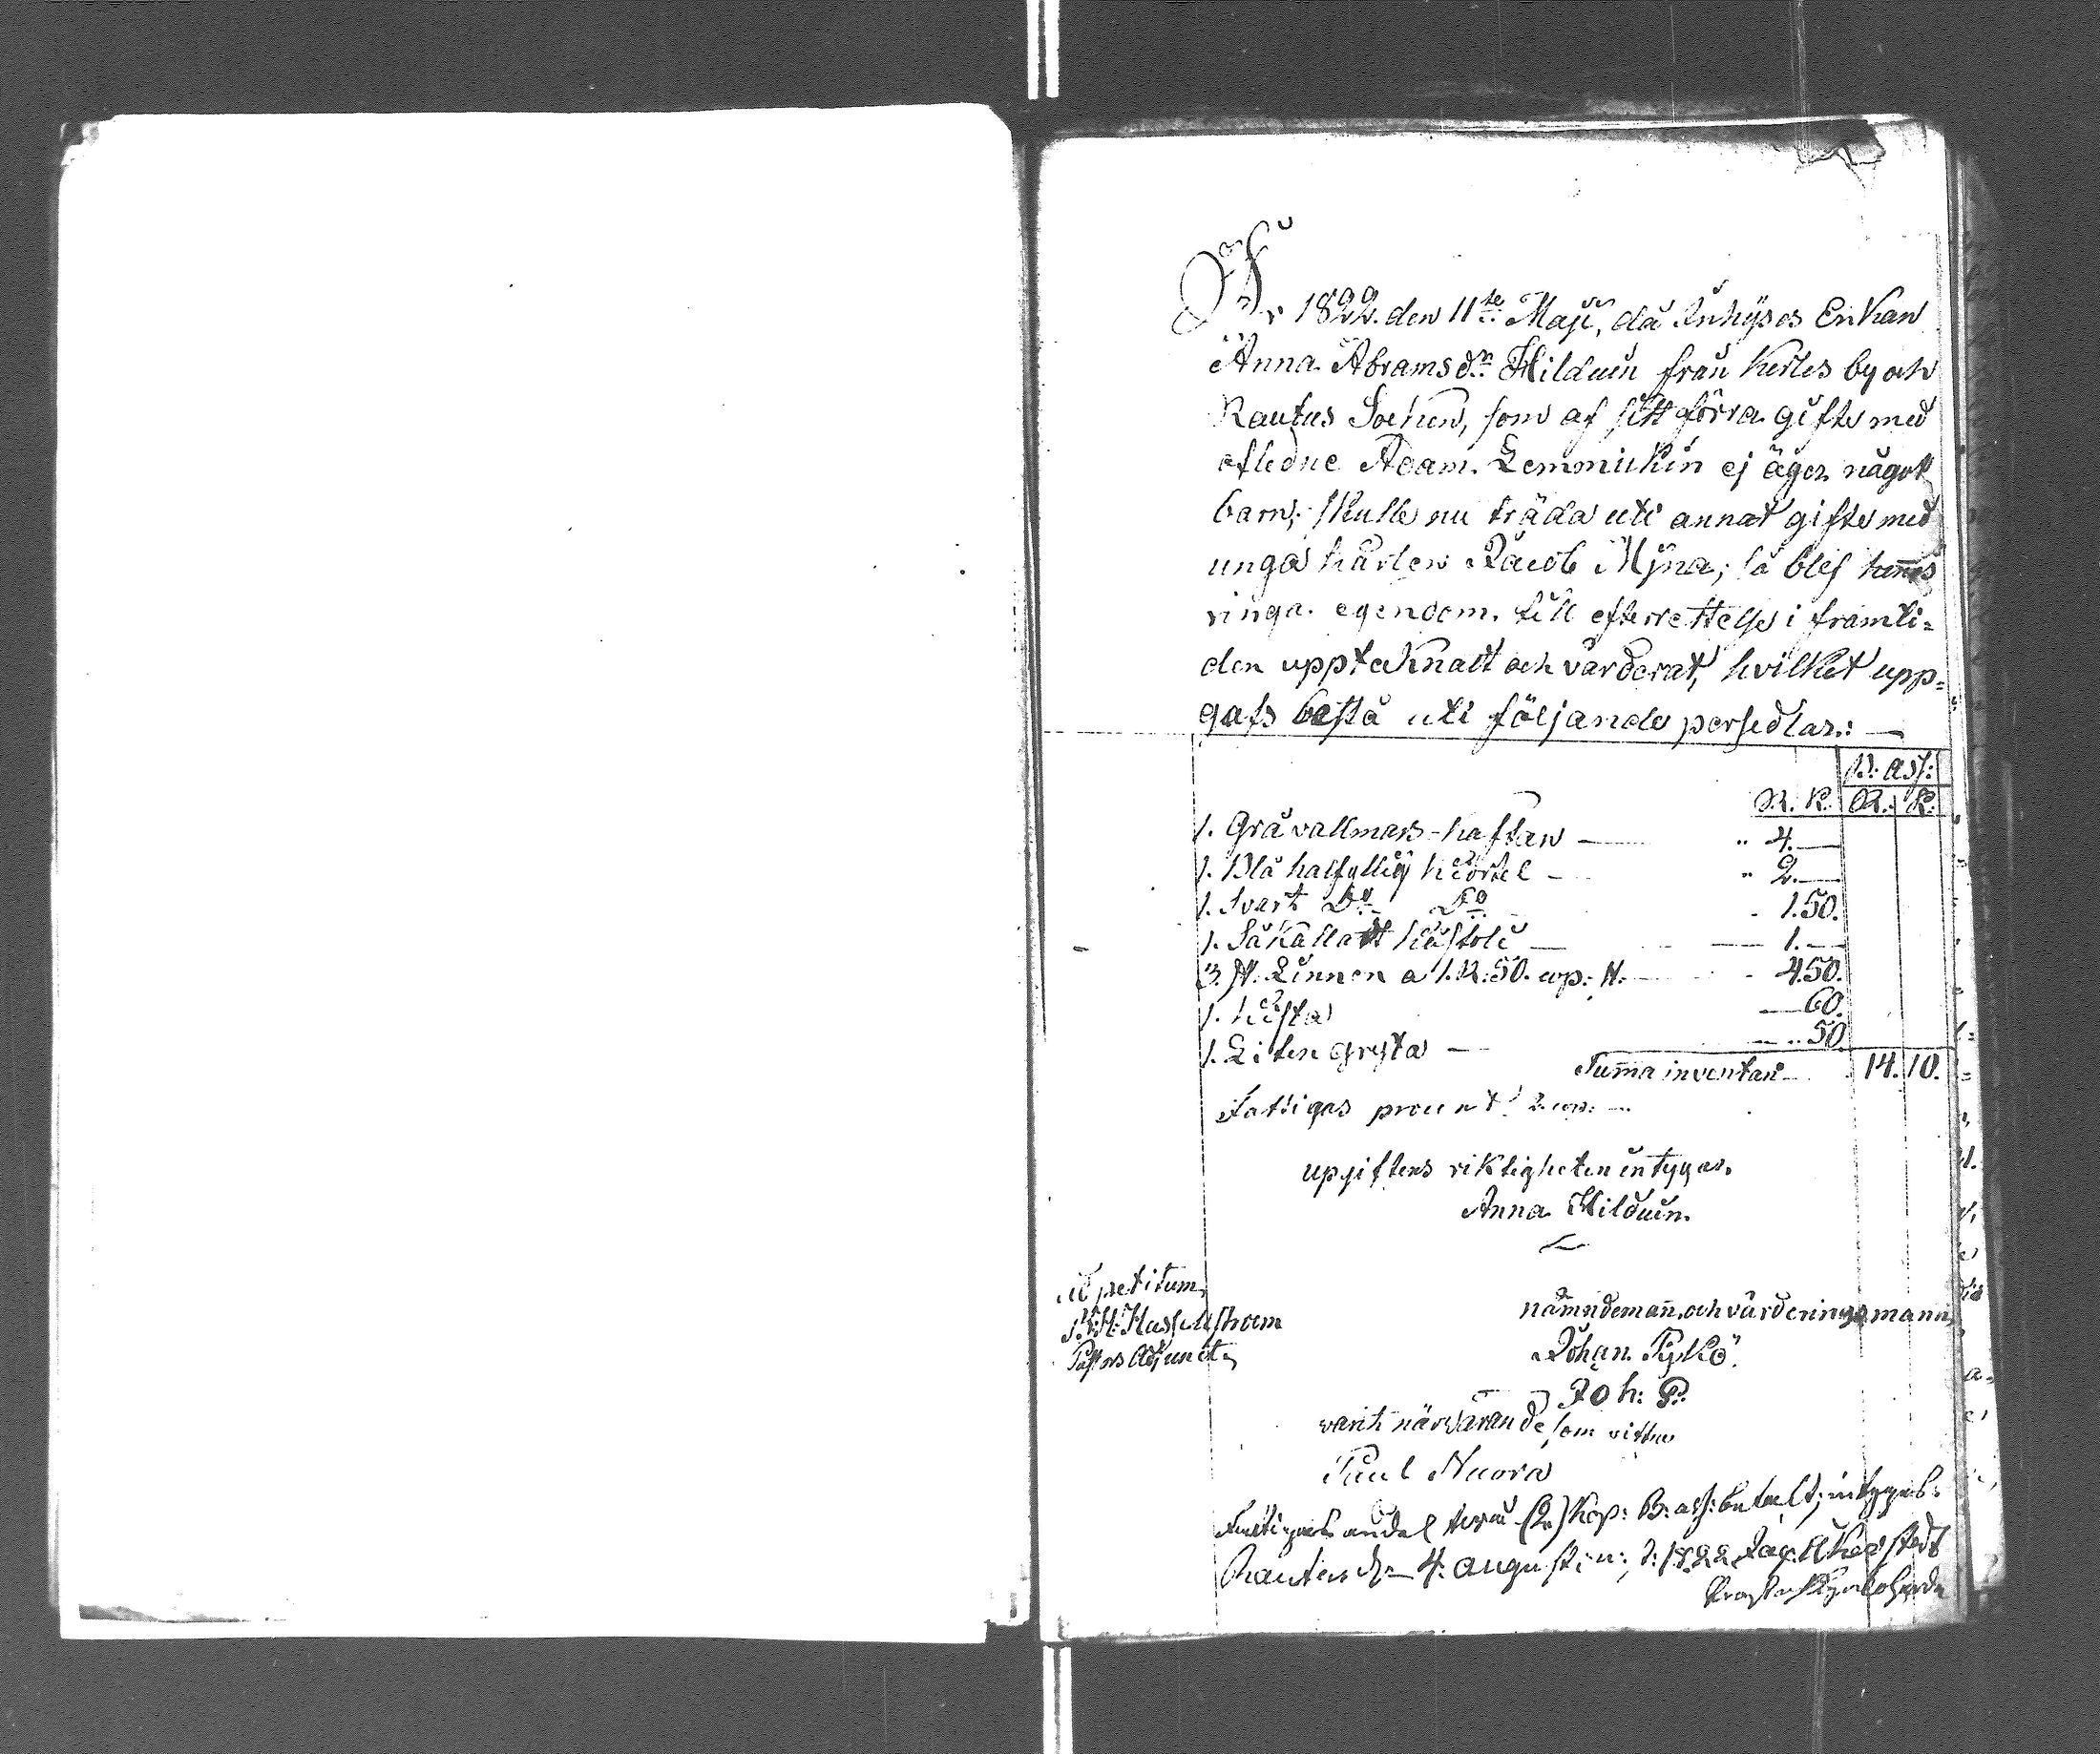 År 1822. den 11te Maji, då Inhyses Enkan
Anna Abramsdr Hilduin från Kerles by och
Rautus Sochen, som af sitt förra gifte med
afledne Adam Lemmickin ej äger något
barn; skulle nu träda uti annat gifte med
unga karlen Jacob Myna; så blef hennes
ringa egendom till efterrettelse i framti=
den upptecknatt och värderat, hvilket upp=
gafs bestå uti följande persedlar: —
B: ass:
R. K. R. K.
1. Grå vallmars-kaftan — " 4. —
1. Blå halfyllig kiortel — " 2. —
1. Svart Do Do - 1.50.
1. Så kallatt — 1. —
3. N: Linnen a 1. R: 50. cop: N: - 4.50.
1. kista — 60.
1. Liten gryta — — 50
Summa inventari 14. 10.
Fattigas procent 2. cop: —
upgiftens riktigheten intygar.
Anna Hilduin.
ut petitum,
Hasselstroem
Pastors Adjunct.
nämndeman, och värderingsmann,
Johan Pykö.
Joh: P.
varit närvarande som vittne
Paul Nuora
Fattigas andel två (2.) Kop: B: ass: betalt; intygas.
Rautus d. 4. Augusti 1822